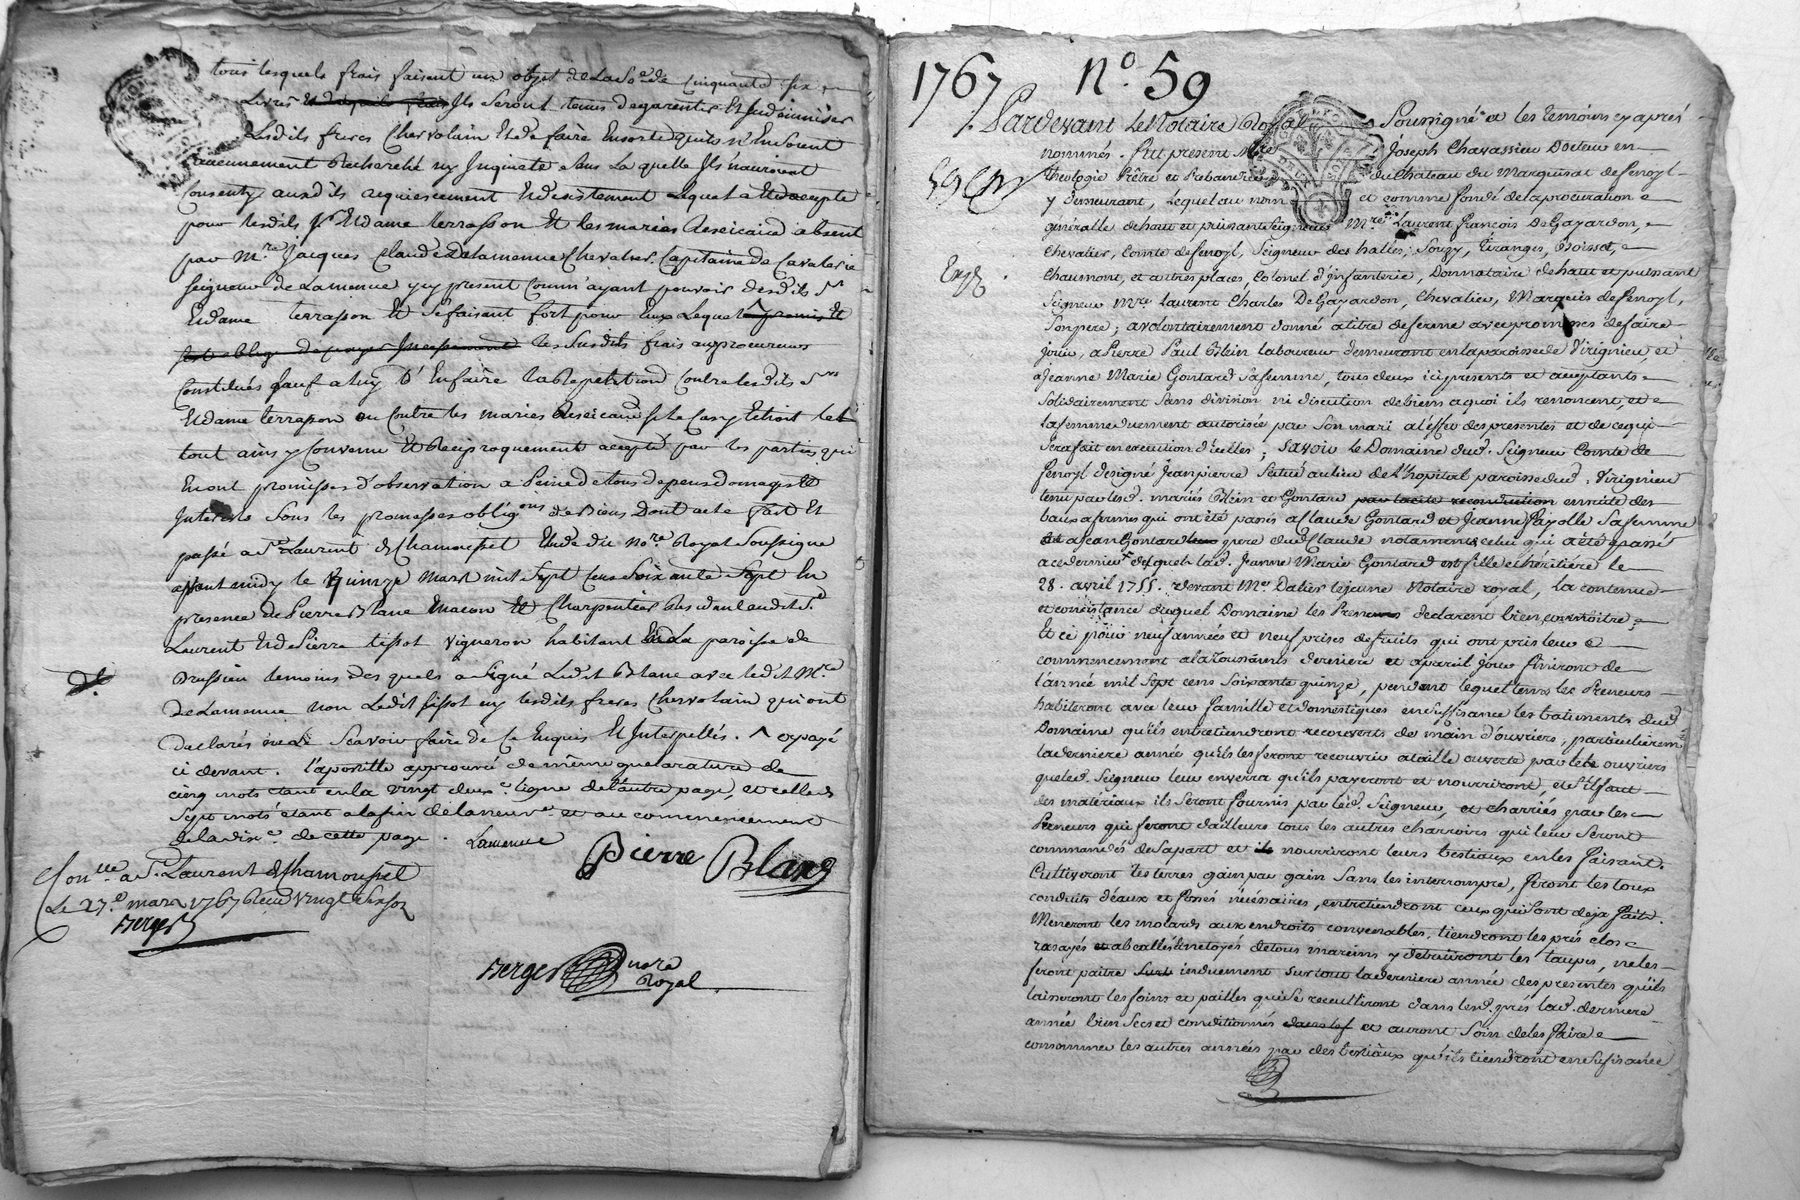 tous lesquels frais faisant un objet de la So.e de Cinquante six
Livres Ils seront tenus de garentir Et Indemniser
Lesdits freres Chervolain Et de faire Ensorte quils n'En soient
aucunnement Recherché ny Inquieté sans La quelle Ils n'auroient
Consenty auxdits acquiescement Et desistement Lequel a Eté accepte
pour lesdits S.r Et dame terrasson Et les mariés absent
par M.re Jacques Claude Delamenue Chevalier Capitaine de Cavalerie
seigneur de Lamenue y present Comm' ayant pouvoir desdits S.r
Et dame terrasson Et se faisant fort pour Eux Lequel a promis et
s'est obligé de payer Incessament les susdits frais aux procureurs
Constitués sauf a luy D'En faire la Repetition Contre lesdits S.rs
Et dame terrasson ou Contre les mariés si le Cas y Echoit le
tout ainsy Convenu Et Reciproquement accepté par les parties qui
En ont promis d'observation a Peine de tous depens domages Et
Interets sous les promesses obligõns de Biens Dont acte fait Et
passé a S.t Laurent de Chamousset Etude du No.re Royal Soussigné
avant midy le quinze Mars mil sept Cens soixante sept En
presence de Pierre Blanc macon Et Charpentier Residant audit S.t
Laurent Et de Pierre tissot vigneron habitant En la paroisse de
Brussieu temoins des quels a signé Ledit Blanc avec ledit M.re
de Lamenue non Ledit tissot ny lesdits freres Chervolain qui ont
declarés ne le Scavoir faire de Ce Enquis Et Interpellés. ^ et payé
ci devant. l'apostille approuvée de même que la rature de
cinq mots etant en la vingt deux.e ligne de l'autre page, et celle de
Sept mots etant a la fin de la neuv.e et au commencement
de la dix.e de cette page. Lamenue
Pierre Blanc
Con.llé a S.t Laurent de Chamousset
Le 27.e mars 1767 Receu vingt six sols
Berger
Berger no.re
Royal
1767 N.o 59
Pardevant Le Notaire Royal Soussigné et les temoins cy aprés
nommés. fut present M.re Joseph Chavassieu Docteur en
59 Theologie Prêtre et Prebendier du Chateau du Marquisat de fenoyl
y demeurant, Lequel au nom et comme fondé de la procuration
généralle de haut et puissant Seigneur M.re Laurent François De Gayardon,
Chevalier, Comte de fenoyl, Seigneur des halles, Souzy, Eiranges, Boisset,
Chaumont, et autres places, Colonel d'infanterie, Donnataire de haut et puissant
Seigneur M.re Laurent Charles De Gayardon, Chevalier, Marquis de fenoyl,
Son pere; a volontairement donné a titre de ferme avec promesses de faire
jouir, a Pierre Paul Blein laboureur demeurant en la paroisse de Virignieu, et
a Jeanne Marie Gontard Sa femme, tous deux ici presents et acceptants
Solidairement Sans division ni discution de biens a quoi ils renoncent, et
la femme duement autorisée par Son mari a l'effet des presentes et de ce qui
Sera fait en execution d'icelles; Savoir le Domaine dud. Seigneur Comte de
fenoyl designé Jeanpierre Situé au lieu de L'hopital paroisse dud. Virignieu
tenu par lesd. mariés Blein et Gontard par tacite reconduction ensuite des
baux a fermes qui ont été passés a Claude Gontard et Jeanne Fayolle Sa femme
et a Jean Gontard pere dud. Claude notament celui qui a été passé
a ce dernier desquels lad. Jeanne Marie Gontard est fille et héritière le
28. avril 1755. devant M.e Dalier le jeune Notaire royal, la contenue
et consistance duquel Domaine les Preneurs declarent bien connoitre;
Et ce pour neuf années et neuf prises de fruits qui ont pris leur
commencement a la Toussaints derniere et a pareil jour finiront de
l'année mil Sept cens Soixante quinze, pendant lequel tems les Preneurs
habiteront avec leur famille et domestiques en suffisance les batiments dud.
Domaine qu'ils entretiendront recouverts de main d'ouvriers, particulierem.t
la derniere année qu'ils les feront recouvrir a taille ouverte par les ouvriers
que led. Seigneur leur enverra qu'ils payeront et nourriront, et s'il faut
des matériaux ils Seront fournis par led. Seigneur, et charriés par les
Preneurs qui feront d'ailleurs tous les autres charrois qui leur Seront
commandés de Sa part et nourriront leurs bestiaux en les faisant.
Cultiveront les terres gain par gain Sans les interrompre, feront les tous
conduits d'eaux et fossés nécéssaires, entretiendront ceux qui Sont deja faits.
Meneront les molards aux endroits convenables, tiendront les prés clos
rasayés et abcallés et netoyés de tous mareins y detruiront les taupes, ne les
feront paitre induement Surtout la derniere année des presentes qu'ils
laisseront les foins et pailles qui Se receulliront dans lesd. prés lad. derniere
année bien Secs et conditionnés et auront Soin de les faire
consommer les autres années par des bestiaux qu'ils tiendront en Sufisance